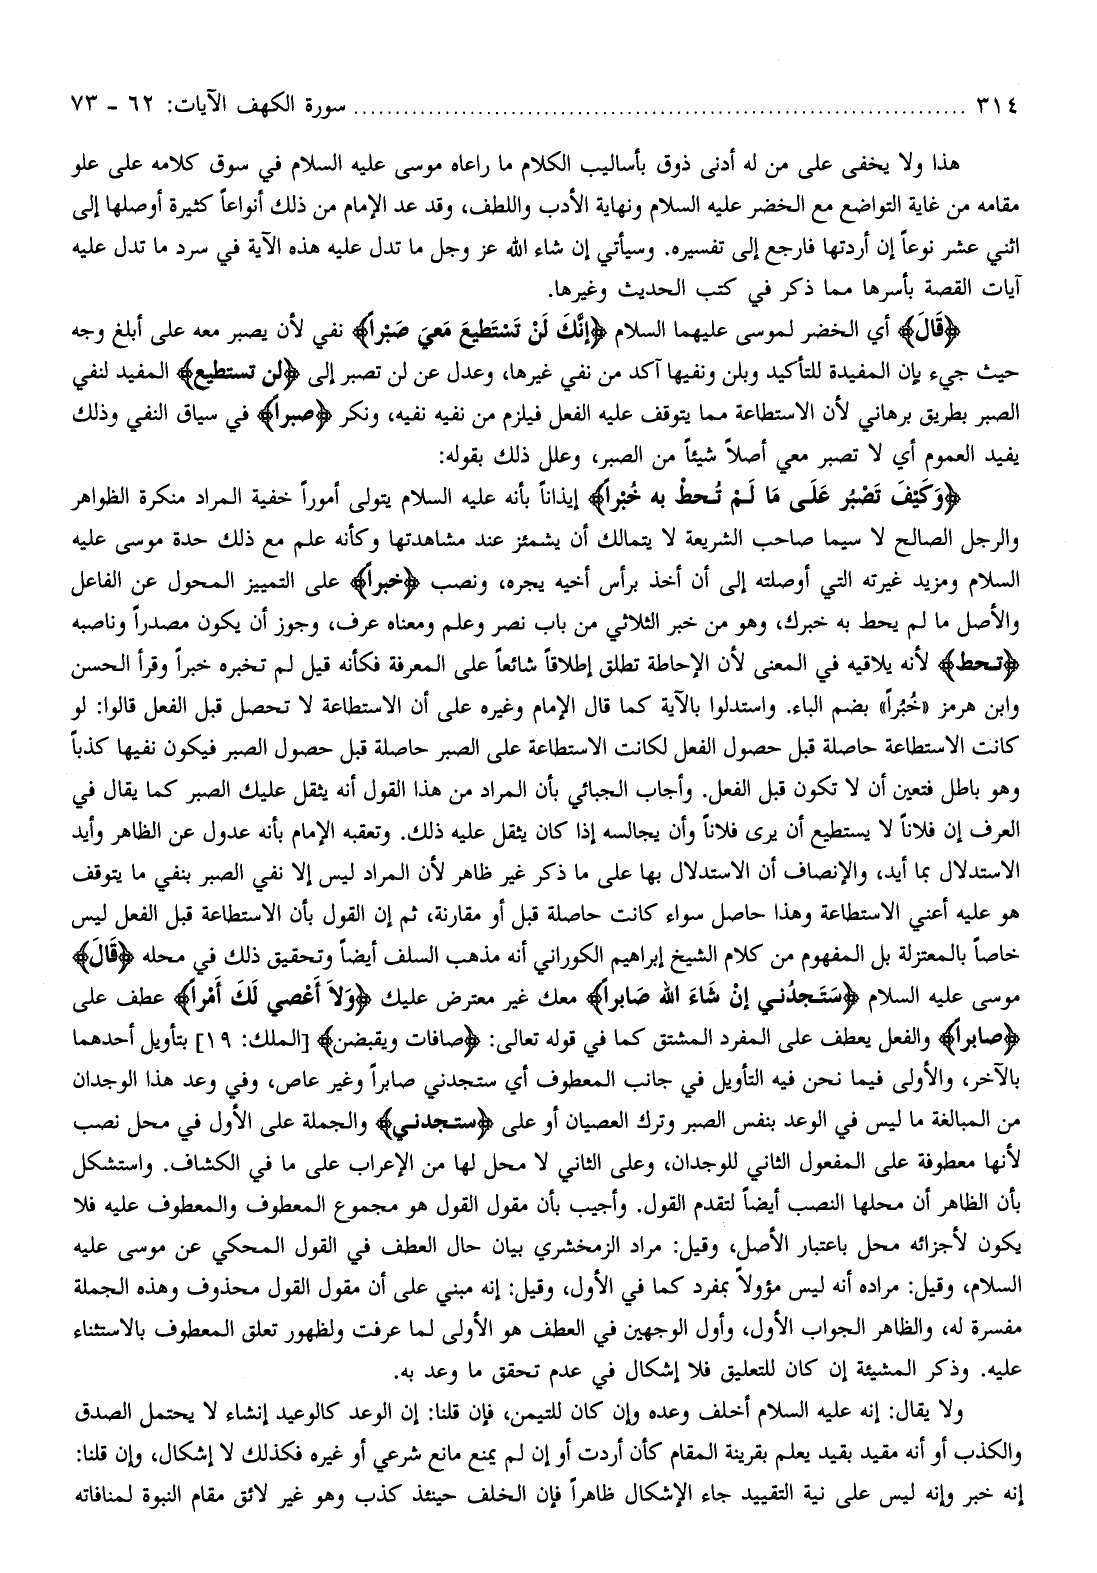 ٣١٤ ........................................................ سورة الكهف الآيات: ٦٢ - ٧٣
هذا ولا يخفى على من له أدنى ذوق بأساليب الكلام ما راعاه موسى عليه السلام في سوق كلامه على علو
مقامه من غاية التواضع مع الخضر عليه السلام ونهاية الأدب واللطف، وقد عد الإمام من ذلك أنواعاً كثيرة أوصلها إلى
اثني عشر نوعاً إن أردتها فارجع إلى تفسيره. وسيأتي إن شاء الله عز وجل ما تدل عليه هذه الآية في سرد ما تدل عليه
آيات القصة بأسرها مما ذكر في كتب الحديث وغيرها.
﴿قَالَ﴾ أي الخضر لموسى عليهما السلام ﴿إِنَّكَ لَنْ تَسْتَطِيعَ مَعِيَ صَبْراً﴾ نفي لأن يصبر معه على أبلغ وجه
حيث جيء بإن المفيدة للتأكيد وبلن ونفيها آكد من نفي غيرها، وعدل عن لن تصبر إلى ﴿لن تستطيع﴾ المفيد لنفي
الصبر بطريق برهاني لأن الاستطاعة مما يتوقف عليه الفعل فيلزم من نفيه نفيه، ونكر ﴿صبراً﴾ في سياق النفي وذلك
يفيد العموم أي لا تصبر معي أصلاً شيئاً من الصبر، وعلل ذلك بقوله:
﴿وَكَيْفَ تَصْبُر عَلَى مَا لَمْ تُحطْ به خُبْراً﴾ إيذاناً بأنه عليه السلام يتولى أموراً خفية المراد منكرة الظواهر
والرجل الصالح لا سيما صاحب الشريعة لا يتمالك أن يشمئز عند مشاهدتها وكأنه علم مع ذلك حدة موسى عليه
السلام ومزيد غيرته التي أوصلته إلى أن أخذ برأس أخيه يجره، ونصب ﴿خبراً﴾ على التمييز المحول عن الفاعل
والأصل ما لم يحط به خبرك، وهو من خبر الثلاثي من باب نصر وعلم ومعناه عرف، وجوز أن يكون مصدراً وناصبه
﴿تحط﴾ لأنه يلاقيه في المعنى لأن الإحاطة تطلق إطلاقاً شائعاً على المعرفة فكأنه قيل لم تخبره خبراً وقرأ الحسن
وابن هرمز «خُبُراً» بضم الباء. واستدلوا بالآية كما قال الإمام وغيره على أن الاستطاعة لا تحصل قبل الفعل قالوا: لو
كانت الاستطاعة حاصلة قبل حصول الفعل لكانت الاستطاعة على الصبر حاصلة قبل حصول الصبر فيكون نفيها كذباً
وهو باطل فتعين أن لا تكون قبل الفعل. وأجاب الجبائي بأن المراد من هذا القول أنه يثقل عليك الصبر كما يقال في
العرف إن فلاناً لا يستطيع أن يرى فلاناً وأن يجالسه إذا كان يثقل عليه ذلك. وتعقبه الإمام بأنه عدول عن الظاهر وأيد
الاستدلال بما أيد، والإنصاف أن الاستدلال بها على ما ذكر غير ظاهر لأن المراد ليس إلا نفي الصبر بنفي ما يتوقف
هو عليه أعني الاستطاعة وهذا حاصل سواء كانت حاصلة قبل أو مقارنة، ثم إن القول بأن الاستطاعة قبل الفعل ليس
خاصاً بالمعتزلة بل المفهوم من كلام الشيخ إبراهيم الكوراني أنه مذهب السلف أيضاً وتحقيق ذلك في محله ﴿قَالَ﴾
موسى عليه السلام ﴿سَتَجدُني إنْ شَاءَ الله صَابراً﴾ معك غير معترض عليك ﴿وَلاَ أَعْصي لَكَ أَمْراً﴾ عطف على
﴿صابراً﴾ والفعل يعطف على المفرد المشتق كما في قوله تعالى: ﴿صافات ويقبضن﴾ [الملك: ١٩] بتأويل أحدهما
بالآخر، والأولى فيما نحن فيه التأويل في جانب المعطوف أي ستجدني صابراً وغير عاص، وفي وعد هذا الوجدان
من المبالغة ما ليس في الوعد بنفس الصبر وترك العصيان أو على ﴿ستجدني﴾ والجملة على الأول في محل نصب
لأنها معطوفة على المفعول الثاني للوجدان، وعلى الثاني لا محل لها من الإعراب على ما في الكشاف. واستشكل
بأن الظاهر أن محلها النصب أيضاً لتقدم القول. وأجيب بأن مقول القول هو مجموع المعطوف والمعطوف عليه فلا
يكون لأجزائه محل باعتبار الأصل، وقيل: مراد الزمخشري بيان حال العطف في القول المحكي عن موسى عليه
السلام، وقيل: مراده أنه ليس مؤولاً بمفرد كما في الأول، وقيل: إنه مبني على أن مقول القول محذوف وهذه الجملة
مفسرة له، والظاهر الجواب الأول، وأول الوجهين في العطف هو الأولى لما عرفت ولظهور تعلق المعطوف بالاستثناء
عليه. وذكر المشيئة إن كان للتعليق فلا إشكال في عدم تحقق ما وعد به.
ولا يقال: إنه عليه السلام أخلف وعده وإن كان للتيمن، فإن قلنا: إن الوعد كالوعيد إنشاء لا يحتمل الصدق
والكذب أو أنه مقيد بقيد يعلم بقرينة المقام كأن أردت أو إن لم يمنع مانع شرعي أو غيره فكذلك لا إشكال، وإن قلنا:
إنه خبر وإنه ليس على نية التقييد جاء الإشكال ظاهراً فإن الخلف حينئذ كذب وهو غير لائق مقام النبوة لمنافاته